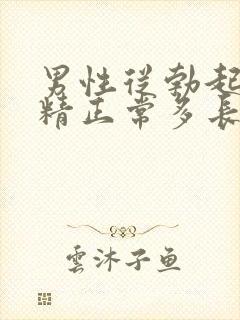 男性从勃起
精正常多長
雲沐子鱼